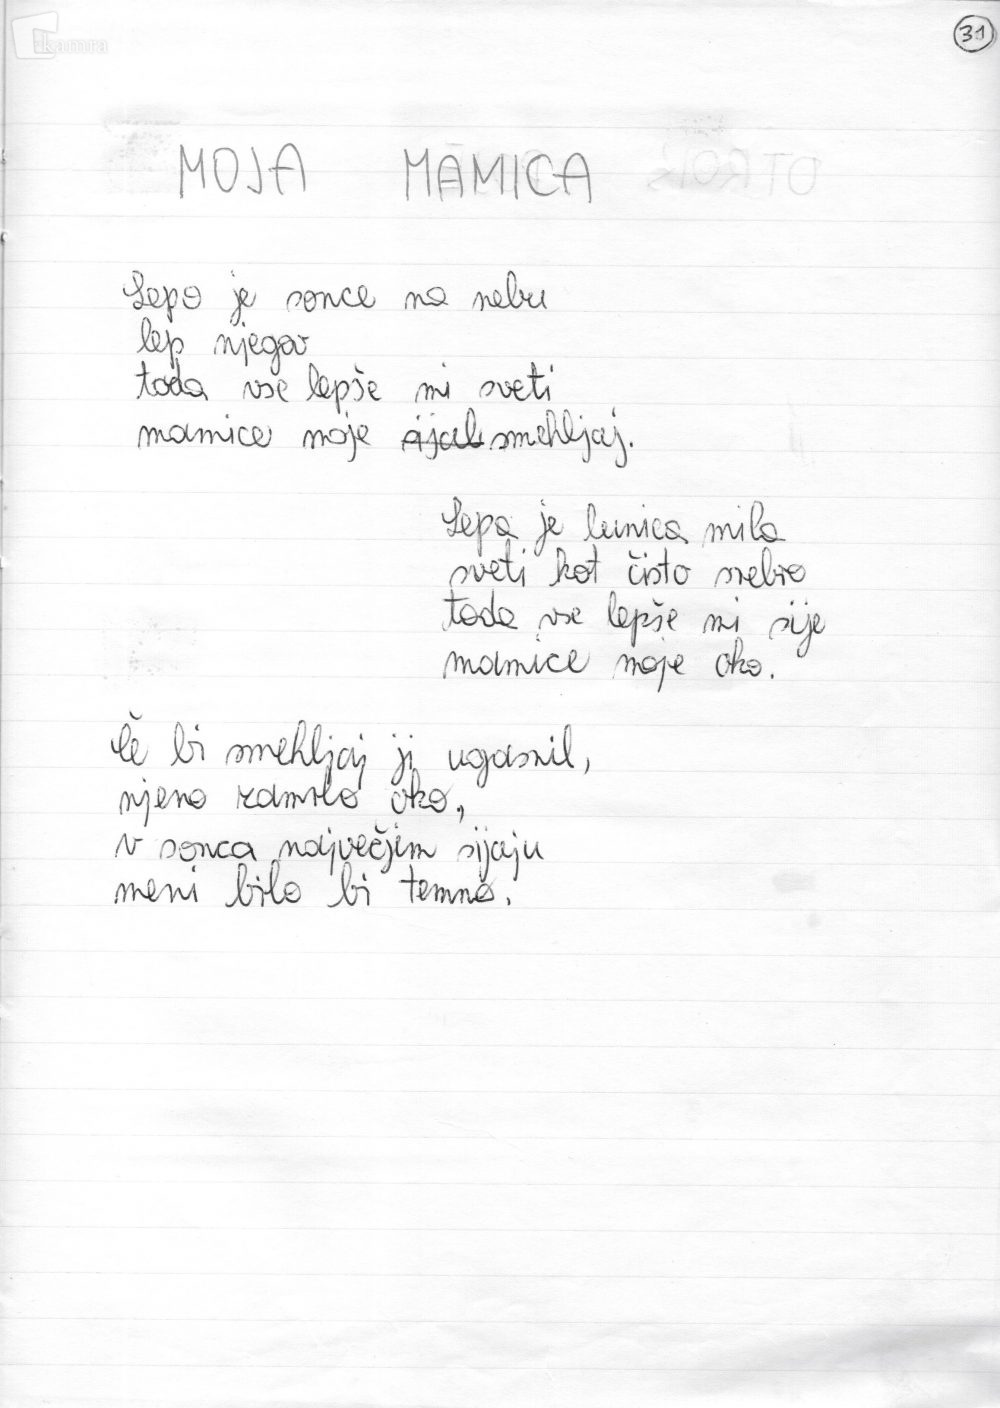 kamra
31
MOJA MAMICA
Lepo je sonce na nebu
lep njegov
toda vse lepše mi sveti
mamice moje sijal smehljaj.
Lepa je lunica mila
sveti kot čisto srebro
toda vse lepše mi sije
mamice moje oko.
Če bi smehljaj ji ugasnil,
njeno zamrlo oko,
v sonca največjim sijaju
meni bilo bi temno.